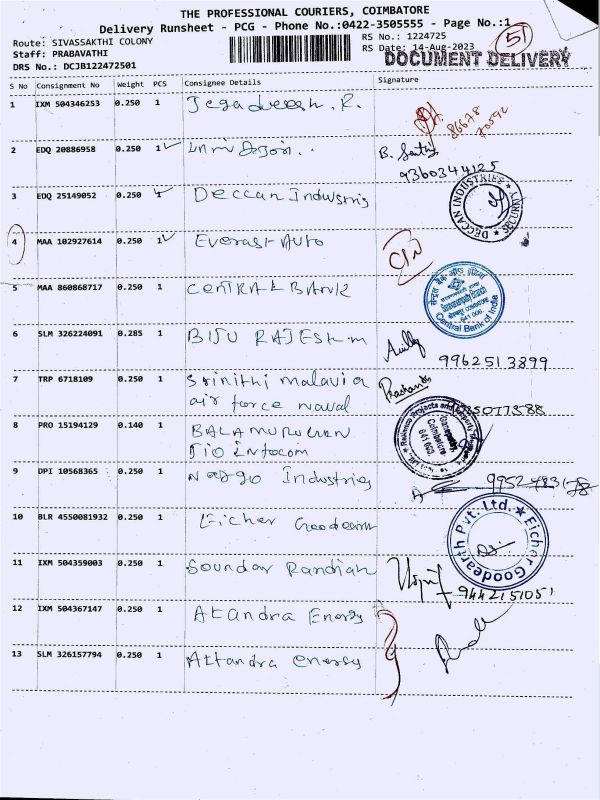 THE PROFESSIONAL COURIERS, COIMBATORE
Delivery Runsheet - PCG - Phone No.:0422-3505555 - Page No.:1
51
Route: SIVASSAKTHI COLONY
RS No.: 1224725
Staff: PRABAVATHI
RS Date: 14-Aug-2023
DRS No.: DCJB122472501
DOCUMENT DELIVERY
S No Consignment No Weight PCS Consignee Details Signature
1 IXM 504346253 0.250 1 Jegadeesh. R.
86678
70592
2 EDQ 20886958 0.250 1 B.
9360344125
3 EDQ 25149052 0.250 1 Deccan Industris
DECCAN INDUSTRIES SECURITY
4 MAA 102927614 0.250 1 Everast Auto
5 MAA 860868717 0.250 1 CENTRAL BANK
Central Bank of India
6 SLM 326224091 0.285 1 BIJU RAJESH M
9962513899
7 TRP 6718109 0.250 1 Srinithi malavia
air force naval
Prashanth
8 PRO 15194129 0.140 1 BALAMURUGAN
JIO Infocom
Coimbatore
9 DPI 10568365 0.250 1 Industries
10 BLR 4550081932 0.250 1 Eicher Goodearth
Eicher Goodearth Pvt. Ltd.
11 IXM 504359003 0.250 1 Soundar Pandian
9442151051
12 IXM 504367147 0.250 1 Akandra Energy
13 SLM 326157794 0.250 1 Altandra energy